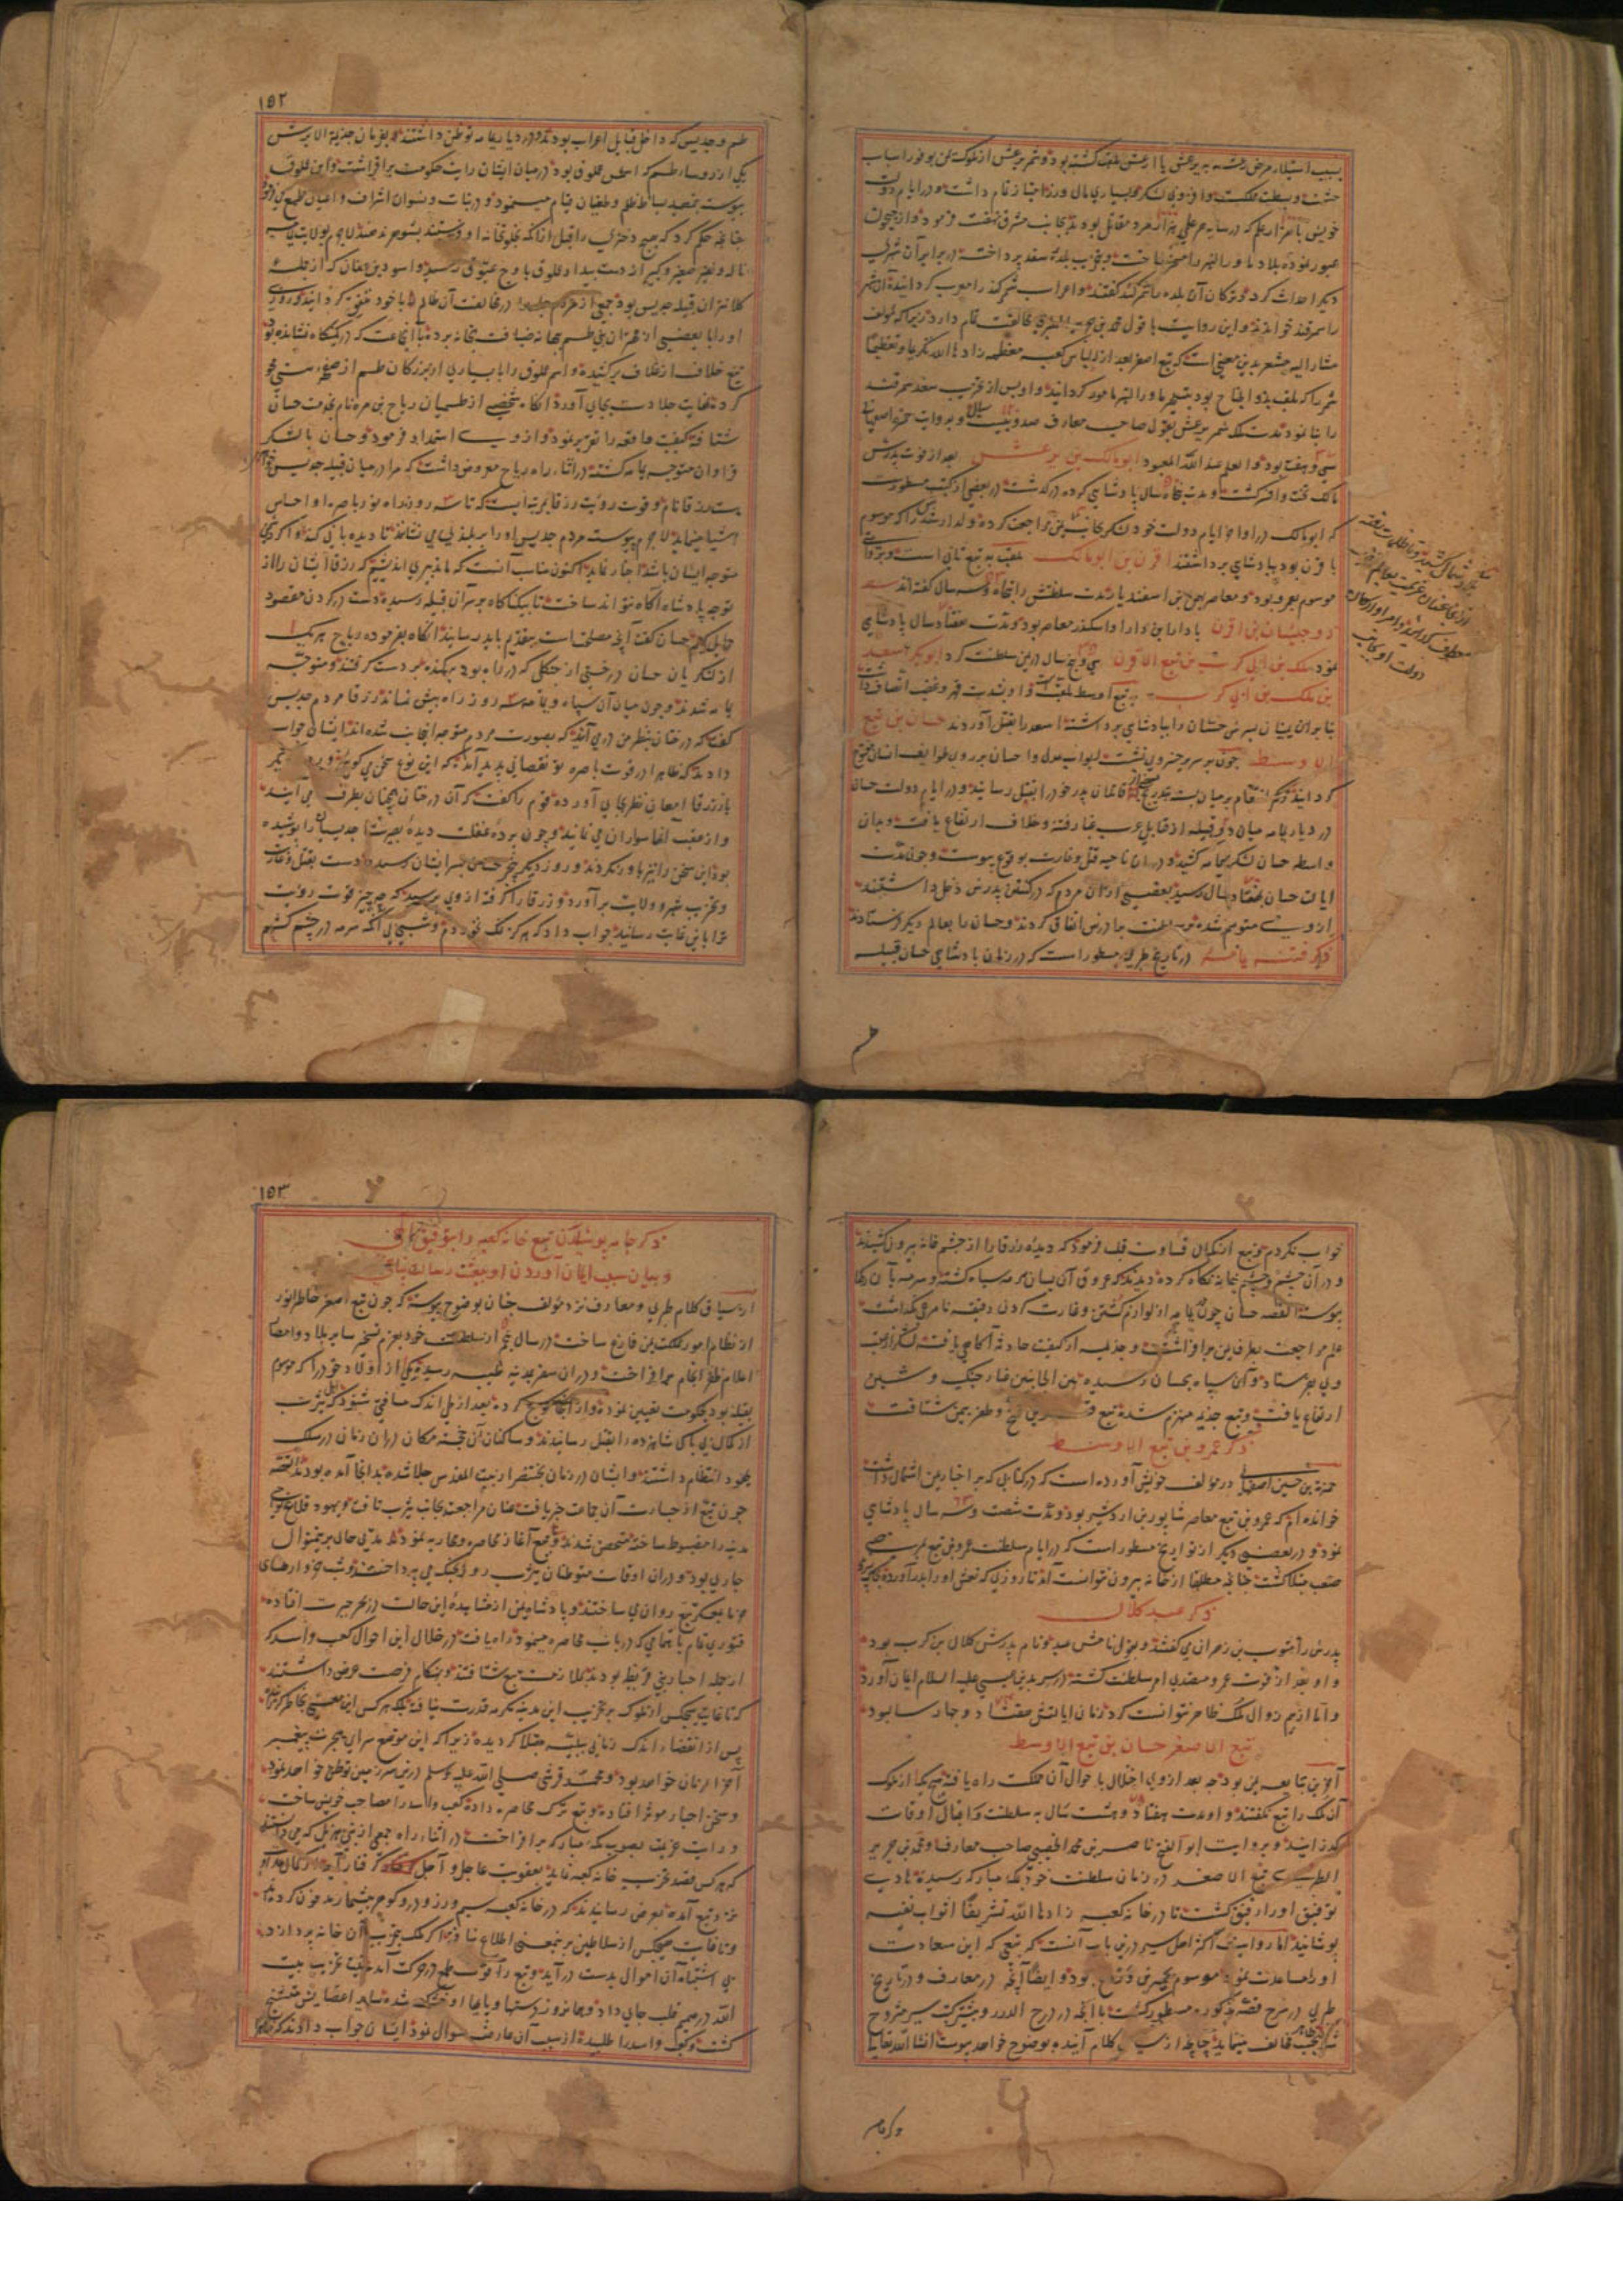 بسبب استیلاء مرض رعشه به یرعش یا ارعش ملقب کشته بود و شمر یرعش از ملوک یمن بوفور اسباب
حشمت و بسطت مملکت و افزونی لشکر و بسیاری مال و زر امتیاز تمام داشت و در ایام دولت
خویش با هزار علم که در سایه هر علمی هزار مرد مقاتل بودند بجانب مشرق نهضت فرمود و از جیحون
عبور نموده بلاد ماوراء النهر را مسخر ساخت و بتخریب بلده سغد پرداخته در برابر آن شهری
دیگر احداث کرد و ترکان آن بلده را شمرکند گفتند و اعراب شمرکند را معرب کردانیده آن شهر
را سمرقند خواندند و این روایت با قول محمد بن جریر الطبری مخالفت تمام دارد زیرا که مؤلف
مشار الیه مشعر بدین معنی است که تبع اصغر بعد از الباس کعبه معظمه زادها الله تکریما و تعظیما
شمر را که ملقب بذو الجناح بود بتسخیر ماوراء النهر مامور کردانید و او پس از تخریب سغد سمرقند
را بنا نمود مدت ملک شمر یرعش بقول صاحب معارف صد و بیست سال و بروایت حمزه اصفهانی
سی و هفت بود و العلم عند الله المعبود ابو مالک بن یرعش بعد از فوت پدرش
مالک تخت و افسر کشت و مدت پنجاه سال پادشاهی کرده درکذشت در بعضی از کتب مسطورست
که ابو مالک در اواخر ایام دولت خود لشکر بجانب
با قرن بود بپادشاهی برداشتند اقرن بن ابو مالک ملقب به تبع ثانی است
موسوم بعمرو بود و معاصر بهمن بن اسفندیار مدت سلطنتش را پنجاه و سه سال گفته‌اند
ذو جیشان بن اقرن با دارا بن دارا و اسکندر معاصر بود و مدت هفتاد سال پادشاهی
نمود ملک بن ابی کرب بن تبع الاقرن سی و پنج سال در یمن سلطنت کرد ابو بکر اسعد
بن ملک بن ابی کرب به تبع اوسط ملقبست و او بشدت قهر و غضب اتصاف داشت
بنا بر آن یمنیان پسرش حسان را بپادشاهی برداشته اسعد را بقتل آوردند حسان بن تبع
الاوسط چون بر سریر خسروی نشست ابواب عدل و احسان بر روی طوایف انسان مفتوح
کردانیده کمر انتقام بر میان بست و بتدریج قاتلان پدر خود را بقتل رسانید و در ایام دولت حسان
در دیار یمامه میان دو قبیله از قبایل عرب غبار فتنه و خلاف ارتفاع یافت و بدان
واسطه حسان لشکر بیمامه کشید و در آن ناحیه قتل و غارت بوقوع پیوست و چون مدت
ایالت حسان بهفتاد سال رسید بعضی از آن مردم که در کشتن پدرش دخل داشتند
از وی متوهم شده بر سلطنت برادرش اتفاق کردند و حسان را بعالم دیکر فرستادند
ذکر فتنه یمامه در تاریخ طبری مسطور است که در زمان پادشاهی حسان قبیله
طسم
۱۵۲
طسم و جدیس که داخل قبایل اعراب بودند و در دیار یمامه توطن داشتند و بفرمان جذیمة الابرش
یکی از رؤساء طسم که اسمش عملوق بود در میان ایشان رایت حکومت برافراشت و این عملوق
پیوست بتمهید بساط ظلم و طغیان قیام مینمود و در بنات و نسوان اشراف و اعیان طمع می
چنانچه حکم کرد که هیچ دختری را قبل از آنکه بخلوتخانه او فرستند بشوهر ندهند لاجرم بولایت یمامه
ناله و نفیر صغیر و کبیر از دست بیداد عملوق باوج عیوق رسید و اسود بن عفان که از جمله
کلانتران قبیله جدیس بود جمعی از مردم جدیس را در مخالفت آن ظالم با خود متفق کردانید و روزی
او را با بعضی از مهتران بنی طسم ببهانه ضیافت بخانه برده با آنجماعت که در کمینگاه نشانده بود
تیغ خلاف از غلاف برکشیده و اسم عملوق را با بسیاری از بزرکان طسم از صفحه هستی محو
کرده غایت جلادت بجای آورد آنکاه شخصی از طسمیان رباح بن مره نام بخدمت حسان
شتافته کیفیت واقعه را تقریر نمود و از وی استمداد فرمود و حسان با لشکر
فراوان متوجه یمامه کشته در اثناء راه رباح معروض داشت که مرا در میان قبیله جدیس
ست زرقا نام و قوت رؤیت زرقا بمرتبه ایست که تا سه روزه راه نور باصره او احساس
اشیا مینماید لاجرم پیوسته مردم جدیس او را بر بلندی می نشانند تا دیده بانی کند و اگر دشمنی
متوجه ایشان باشد اخبار نماید اکنون مناسب آنست که ما تدبیری اندیشیم که زرقا ایشان را از
توجه پادشاه آکاه نتواند ساخت تا بیکناکاه بر سر آن قبیله رسیده دست در کردن مقصود
حمایل کنیم حسان کفت آنچه مصلحت است بتقدیم باید رسانید آنکاه بفرموده رباح هر یک
از لشکریان حسان درختی از جنکلی که در راه بود بیکنده بدست کرفتند و متوجه
یمامه شدند و چون میان آن سپاه و یمامه سه روزه راه بیش نماند زرقا مردم جدیس را
کفت که درختان بنظر من در می آیند که بصورت مردم متوجه اینجانب شده اند ایشان جواب
دادند که ظاهرا در قوت باصره تو نقصانی پدید آمده که این نوع سخن می کوئی و
باز زرقا امعان نظر بجای آورده قوم را کفت که آن درختان همچنان بطرف ما می آیند
و از عقب آنها سواران می نمایند و چون پرده غفلت دیده بصیرت جدیسیان را پوشیده
بود این سخن را نیز باور نکردند و روز دیکر حسان بسر ایشان رسیده دست بقتل و غارت
و تخریب شهر و ولایت برآورد و زرقا را کرفته از وی پرسید که چه چیز قوت رؤیت
ترا باین غایت رسانید جواب داد که هرکز نمک نخوردم و شبی بی آنکه سرمه در چشم کشم
خواب نکردم تبع از کمال قساوت قلب فرمود که دیده زرقا را از چشم خانه بیرون کشیدند
و در آن چشم و چشم خانه نکاه کرده دیدند که عروق آن بسان سرمه سیاه کشته و سرمه بآن رکها
پیوسته القصه حسان چون در یمامه از لوازم کشتن و غارت کردن دقیقه نامرعی نکذاشت
علم مراجعت بطرف یمن برافراشت و جذیمه از کیفیت حادثه آکاهی یافته لشکر از عقب
وی بفرستاد و آن سپاه بحسان رسیده بین الجانبین غبار جنک و شین
ارتفاع یافت و تبع جذیمه منهزم شده تبع قرین فتح و ظفر بیمن شتافت
ذکر عمرو بن تبع الاوسط
حمزة بن حسین اصفهانی در مؤلف خویش آورده است که در کتابی که بر اخبار یمن اشتمال داشت
خوانده ام که عمرو بن تبع معاصر شاپور بن اردشیر بود و مدت شصت و سه سال پادشاهی
نمود و در بعضی دیکر از تواریخ مسطور است که در ایام سلطنت عمرو بن تبع بمرضی
صعب مبتلا کشت چنانچه مطلقا از خانه بیرون نتوانست آمد تا روزی که نعش او را بدر آوردند
ذکر عبد کلال
پدرش را مثوب بن ذی رعین می کفتند و بقولی نامش عبد و نام پدرش کلال بن کرب بود
و او بعد از فوت عمرو متصدی امر سلطنت کشته در سر بدین عیسی علیه السلام ایمان آورد
و اما از بیم زوال ملک ظاهر نتوانست کرد زمان ایالتش هفتاد و چهار سال بود
تبع الاصغر حسان بن تبع الاوسط
آخرین تبابعه یمن بود چه بعد از وی اختلال باحوال آن مملکت راه یافته هیچ یک از ملوک
آن ملک را تبع نکفتند و او مدت هفتاد و هشت سال به سلطنت و اقبال اوقات
کذرانید و بروایت ابو الفتح ناصر بن محمد الحصیبی صاحب معارف و محمد بن جریر
الطبری تبع الاصغر در زمان سلطنت خود بمکه مبارکه رسیده هادی
توفیق او را رفیق کشت تا در خانه کعبه زادها الله تشریفا اثواب نفیسه
پوشانید اما روایت اکثر اهل سیر درین باب آنست که تبعی که این سعادت
او را مساعدت نمود موسوم بحمیر بن وردع بود و ایضا آنچه در معارف و تاریخ
طبری در شرح قصه مذکوره مسطور کشت با آنچه در درج الدرر و بیشتر کتب سیر مشروح
شده بحسب ظاهر مخالف مینماید چنانچه از سیاق کلام آینده بوضوح خواهد پیوست انشا الله تعالی
ذکر جامه
۱۵۳
ذکر جامه پوشیدن تبع خانه کعبه را بتوفیق الهی
و بیان سبب ایمان آوردن او ببعثت رسالت پناهی
از سیاق کلام طبری و معارف نزد مؤلف چنان بوضوح پیوسته که چون تبع اصغر خاطر انور
از نظام امور مملکت یمن فارغ ساخت در سال پنجم از سلطنت خود بعزم تسخیر سایر بلاد و امصار
اعلام ظفر انجام برافراخت و در آن سفر بمدینه طیبه رسیده یکی از اولاد خود را که موسوم
بقیله بود بحکومت تعیین نمود و از آنجا کوچ کرده بعد از طی اندک مسافتی شنود که اهل یثرب
از کمال بی باکی شاهزاده را بقتل رسانیدند و ساکنان آن خجسته مکان در آن زمان در سلک
یهود انتظام داشتند و ایشان در زمان بختنصر از بیت المقدس جلا شده بدانجا آمده بودند القصه
چون تبع از جسارت آن جماعت خبر یافت عنان مراجعت بجانب یثرب تافت و یهود قلاع نواحی
مدینه را مضبوط ساخته متحصن شدند و تبع آغاز محاصره و محاربه نمود مدتی حال برینمنوال
جاری بود و در آن اوقات متوطنان یثرب روز بجنک می پرداختند و شب خرواهای
خرما بعسکر تبع روان می ساختند و پادشاه یمن از مشاهده این حالت در بحر حیرت افتاده
فتوری تمام باهتمامی که در باب محاصره مینمود راه یافت در خلال این احوال کعب و اسد که
از جمله احبار بنی قریظه بودند بملازمت تبع شتافتند و بهنکام فرصت عرض داشتند
که تا غایت هیچکس از ملوک بر تخریب این مدینه مکرمه قدرت نیافته بلکه هر کس این معنی بخاطر کذرانیده
پس از انقضاء اندک زمانی ببلیه مبتلا کردیده زیرا که این موضع سرای هجرت پیغمبر
آخر الزمان خواهد بود و محمد قرشی صلی الله علیه و سلم درین سرزمین توطن خواهد نمود
و سخن احبار مؤثر افتاده تبع ترک محاصره داده کعب و اسد را مصاحب خویش ساخت
و رایت عزیمت بصوب مکه مبارکه برافراخت در اثناء راه جمعی از بنی هذیل که می دانستند
که هر کس قصد تخریب خانه کعبه نماید بعقوبت عاجل و آجل گرفتار آید
نزد تبع آمده بعرض رسانیدند که در خانه کعبه سیم و زر و در و کوهر بیشمار مدفون کرده اند
و تا غایت هیچکس از سلاطین برینمعنی اطلاع نیافته اگر ملک بتخریب آن خانه پردازد
بی اشتباه آن اموال بدست در آید و تبع را قوت طمع در حرکت آمده نیت تخریب بیت
الله در صمیم قلب جای داد و همانروز دستها و پایها او خشک شده سایر اعضایش متشنج
کشت و کعب و اسد را طلبیده از سبب آن عارضه سوال نمود ایشان جواب دادند که